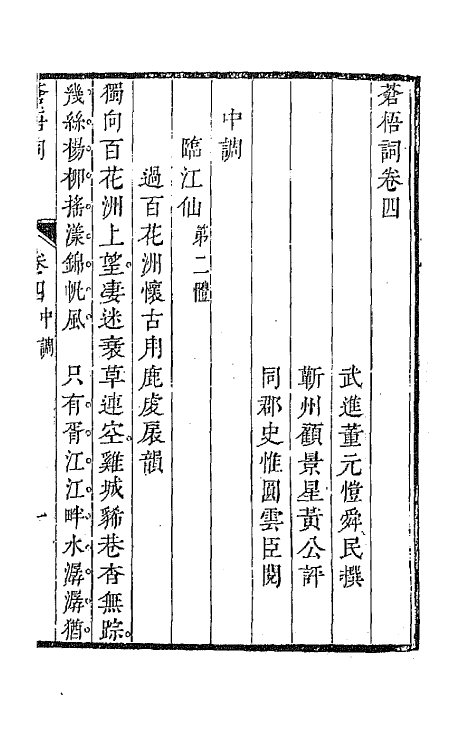 蒼梧詞卷四
武進董元愷舜民撰
蘄州顧景星黃公評
同郡史惟圓雲臣閱
中調
臨江仙第二體
過百花洲懷古用鹿虔扆韻
獨向百花洲上望。淒迷衰草連空。雞城豨巷杳無踪。
幾絲楊柳搖漾錦帆風。　只有胥江江畔水潺潺猶
蒼梧詞　卷四中調　一